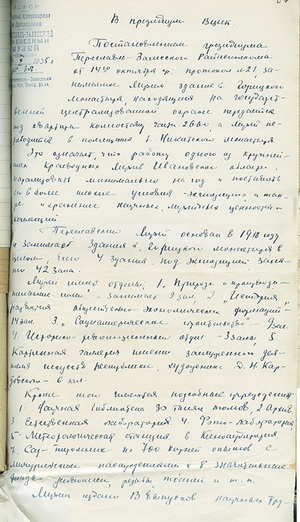 В президиум ВЦИК
Постановлением президиума
Переславль-Залесского Райисполкома
от 14го октября протокол № 21, за-
нимаемые Музеем здания б. Горицкого
монастыря находящиеся на государст-
венной централизованной охране передаются
под квартиры комсоставу части 2660, а Музей пе-
реводится в помещение б. Никитского монастыря.
Это означает, что работу одного из крупней-
ших краеведных Музеев Ивановской области
парализовать минимально на год и поставить
его в более тяжкие условия экспозиции, а также
и хранение научных, музейных ценностей и
коллекций.
Переславский Музей основан в 1918 году
и занимает здания б. Горицкого монастыря в
целом, 4 здания, под экспозицией занято
42 зала.
Музей имеет отделы: 1. Природа и производи-
тельные силы - занимает 9 зал, 2. "История
развития общественно-экономических формаций"
14 зал. 3. "Социалистическое строительство" -
4. Историко-революционный отдел - 3 зала, 5.
Картинная галерея имени заслуженного дея-
теля искусств Республики, художника Д. Н. Кар-
довского - 6 зал.
Кроме того имеются подсобные учреждения
1. Научная библиотека 30 тысяч томов, 2. Архив
3. Естественная лаборатория. 4. Фото-лаборатория
5. Метеорологическая станция
7. Сад-питомник на 700 корней опытных с
фонда живописи, резьбы, тканей и т. п.
Музеем издано 13 выпусков научных тру-